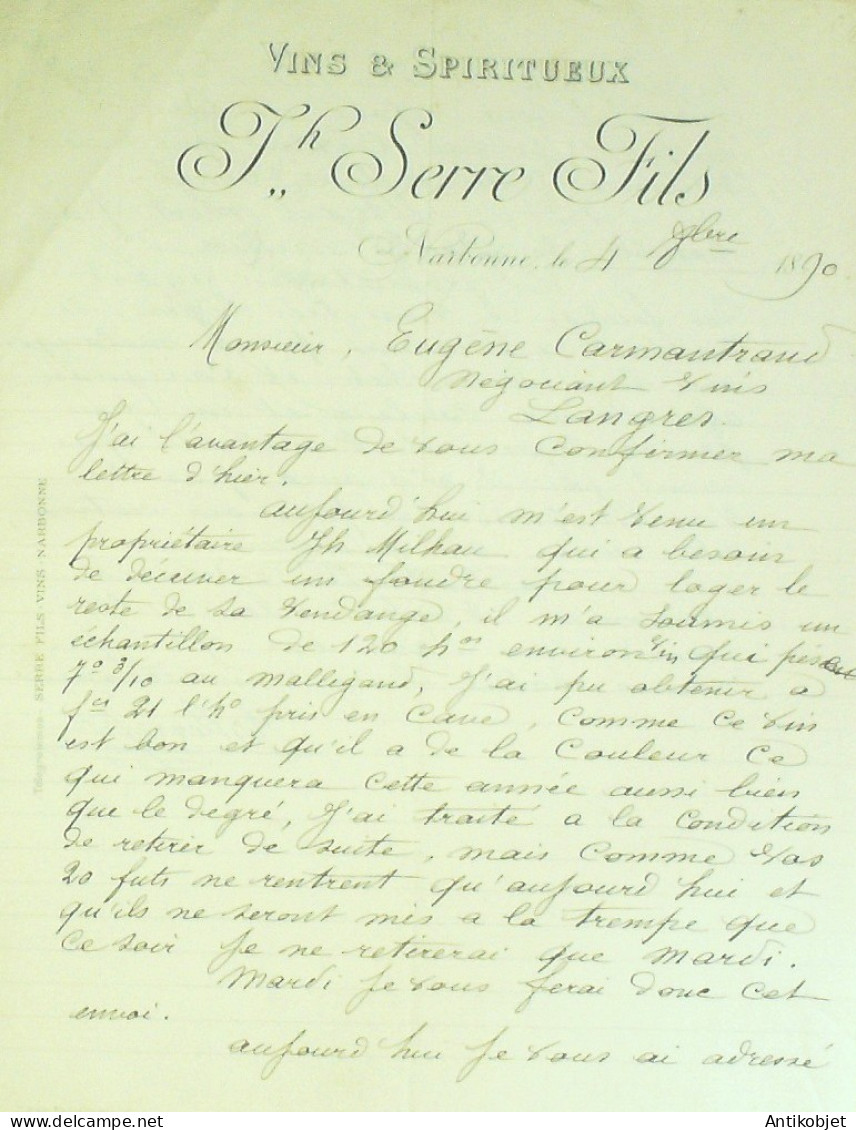 VINS & SPIRITUEUX
J.h Serre Fils
Narbonne, le 4 1890
Monsieur, Eugène Carmantrand
négociant Vins
Langres.
J'ai l'avantage de vous confirmer ma
lettre d'hier.
aujourd'hui m'est venu un
propriétaire Jh Milhau qui a besoin
de décuver un foudre pour loger le
reste de sa vendange, il m'a soumis un
échantillon de 120 hos environ vin qui pèse
7° 3/10 au malligand, J'ai pu obtenir a
frs 21 l'ho pris en cave, comme ce vin
est bon et qu'il a de la couleur ce
qui manquera cette année aussi bien
que le degré, J'ai traité a la condition
de retirer de suite, mais comme vos
20 futs ne rentrent qu'aujourd'hui et
qu'ils ne seront mis a la trempe que
ce soir Je ne retirerai que Mardi.
Mardi Je vous ferai donc cet
envoi.
aujourd'hui Je vous ai adressé
SERRE FILS VINS NARBONNE
Antikobjet
delcampe.net